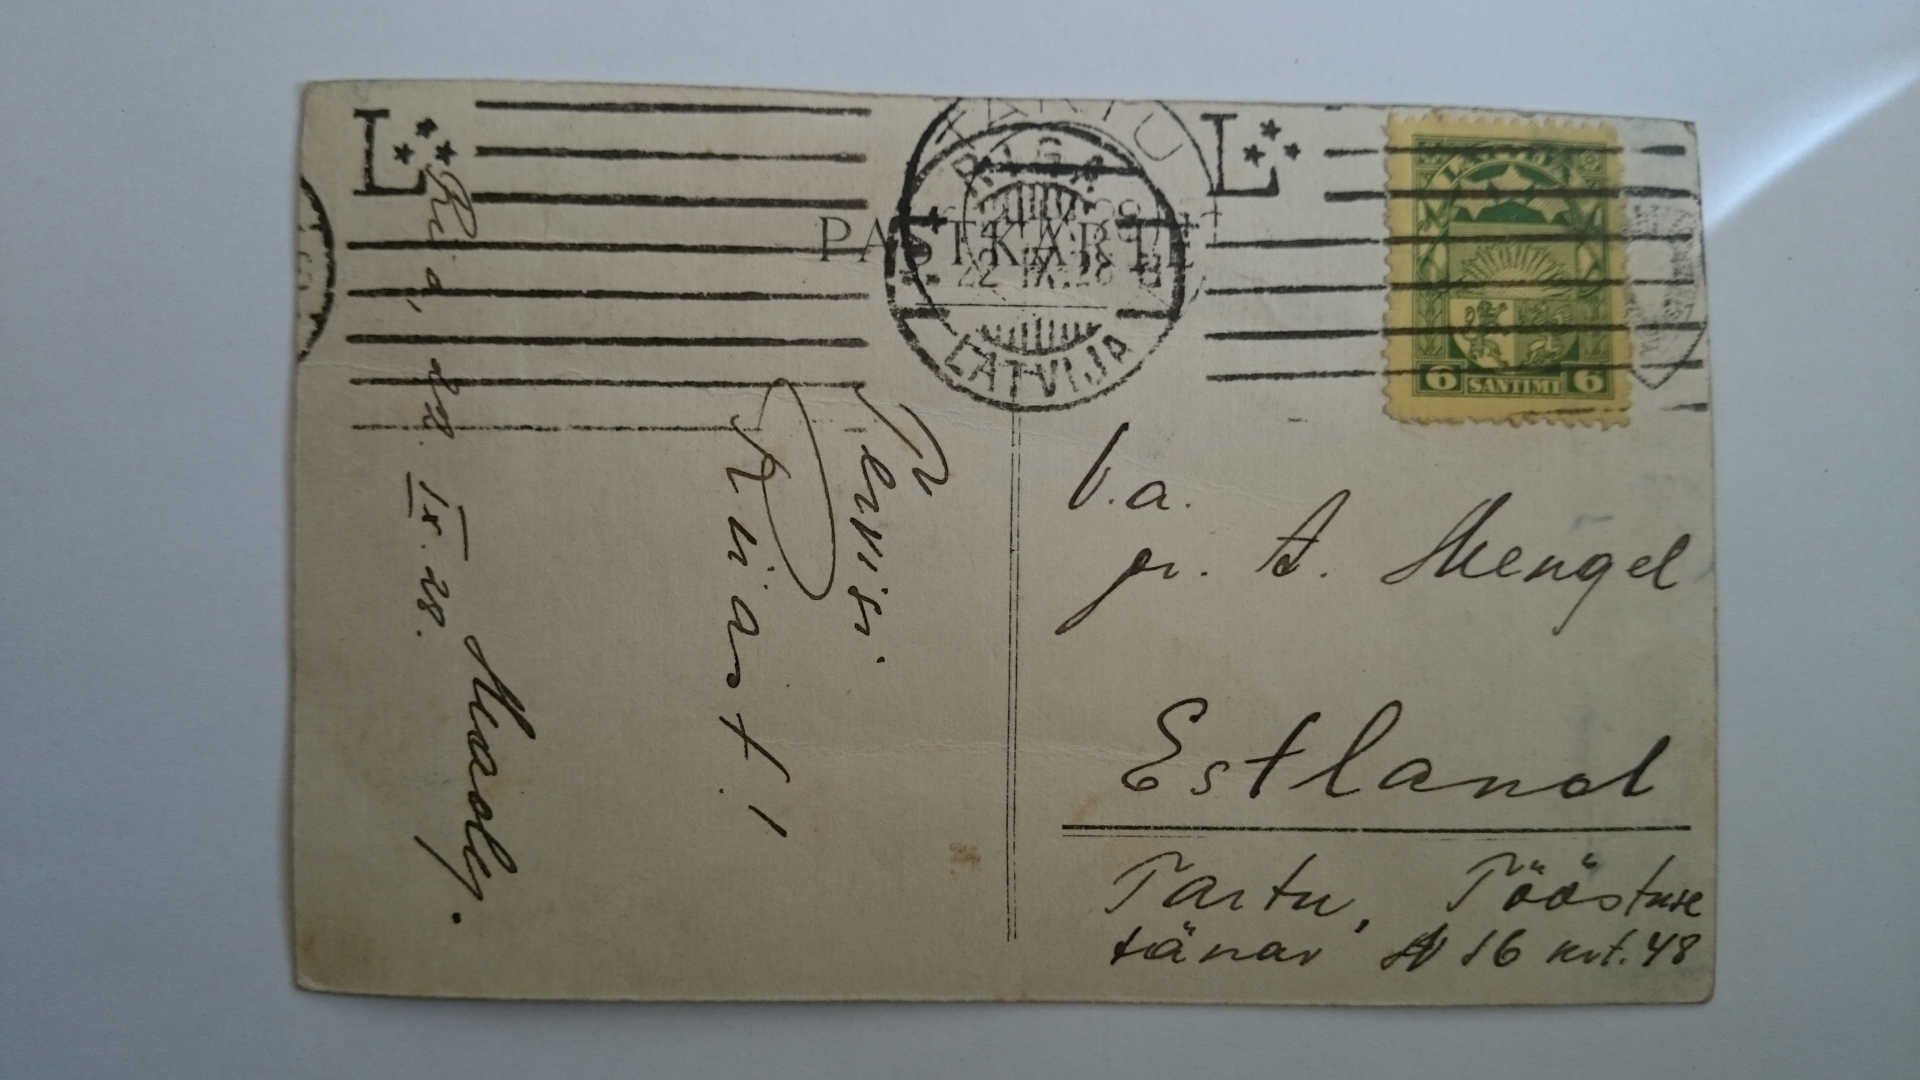 TARTU
RIGA
22 IX.28
LATVIJA
PASTKARTE
L L
LATVIJA
6 SANTIMI 6
Tervisi
Riiast!
Riia, 22. IX. 28.
b.a.
pr. A. Mengel
Estland
Tartu, Tööstuse
tänav № 16 krt. 48